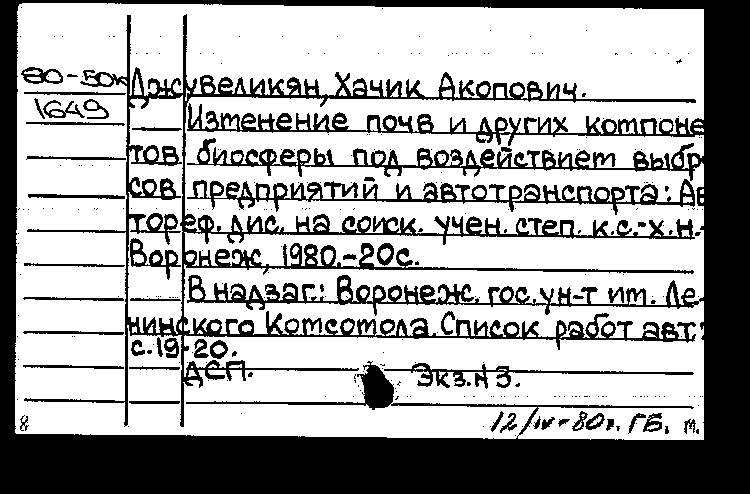 80-50к
1649
Джувеликян, Хачик Акопович.
Изменение почв и других компоне
тов биосферы под воздействием выбр
сов предприятий и автотранспорта: Ав
тореф. дис. на соиск. учен. степ. к.с.-х.н.-
Воронеж, 1980.-20с.
В надзаг.: Воронеж. гос. ун-т им. Ле-
нинского Комсомола. Список работ авт.:
с.19-20.
ДСП. Экз.N 3.
8 12/IV-80г. ГБ. м.